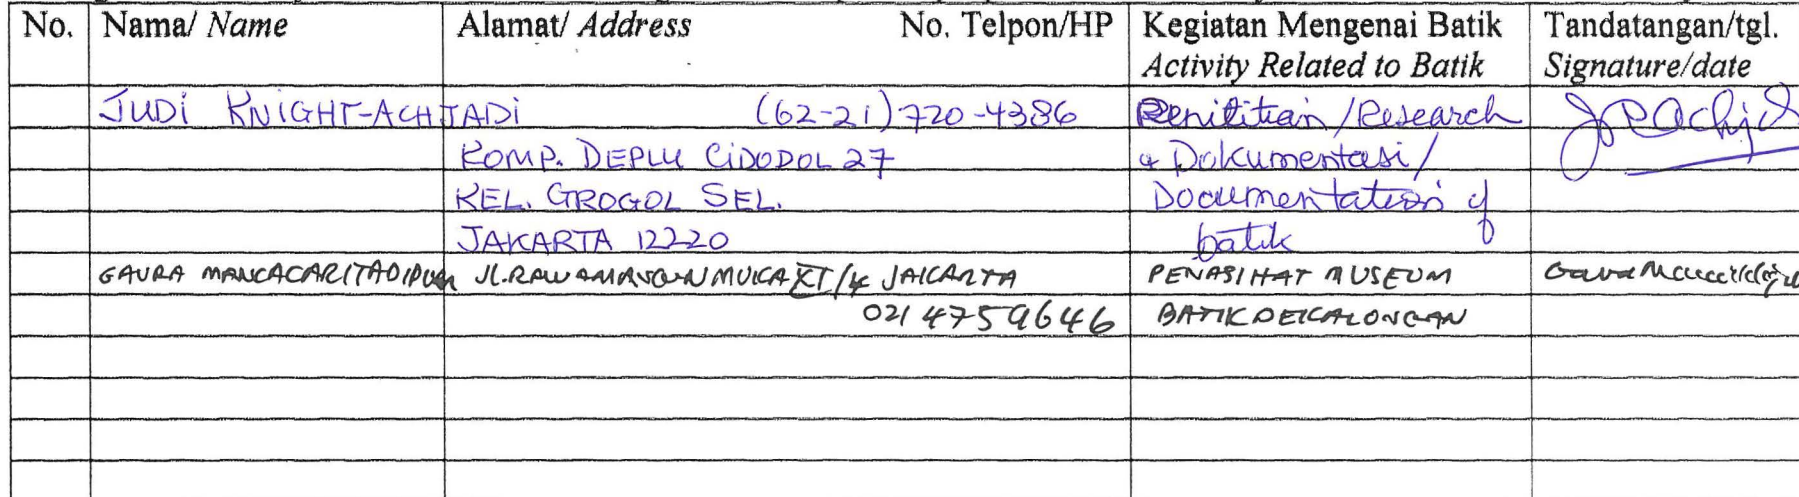 No. Nama/ Name Alamat/ Address No. Telpon/HP Kegiatan Mengenai Batik Tandatangan/tgl.
Activity Related to Batik Signature/date
JUDI KNIGHT-ACHJADI (62-21)720-4386 Penilitian/Research
KOMP. DEPLU CIDODOL 27 & Dokumentasi/
KEL. GROGOL SEL. Documentation of
JAKARTA 12220 batik
GAURA MANCACARITADIPURA JL.RAWAMANGUN MUKA XI/4 JAKARTA PENASIHAT MUSEUM
021 4759646 BATIK PEKALONGAN